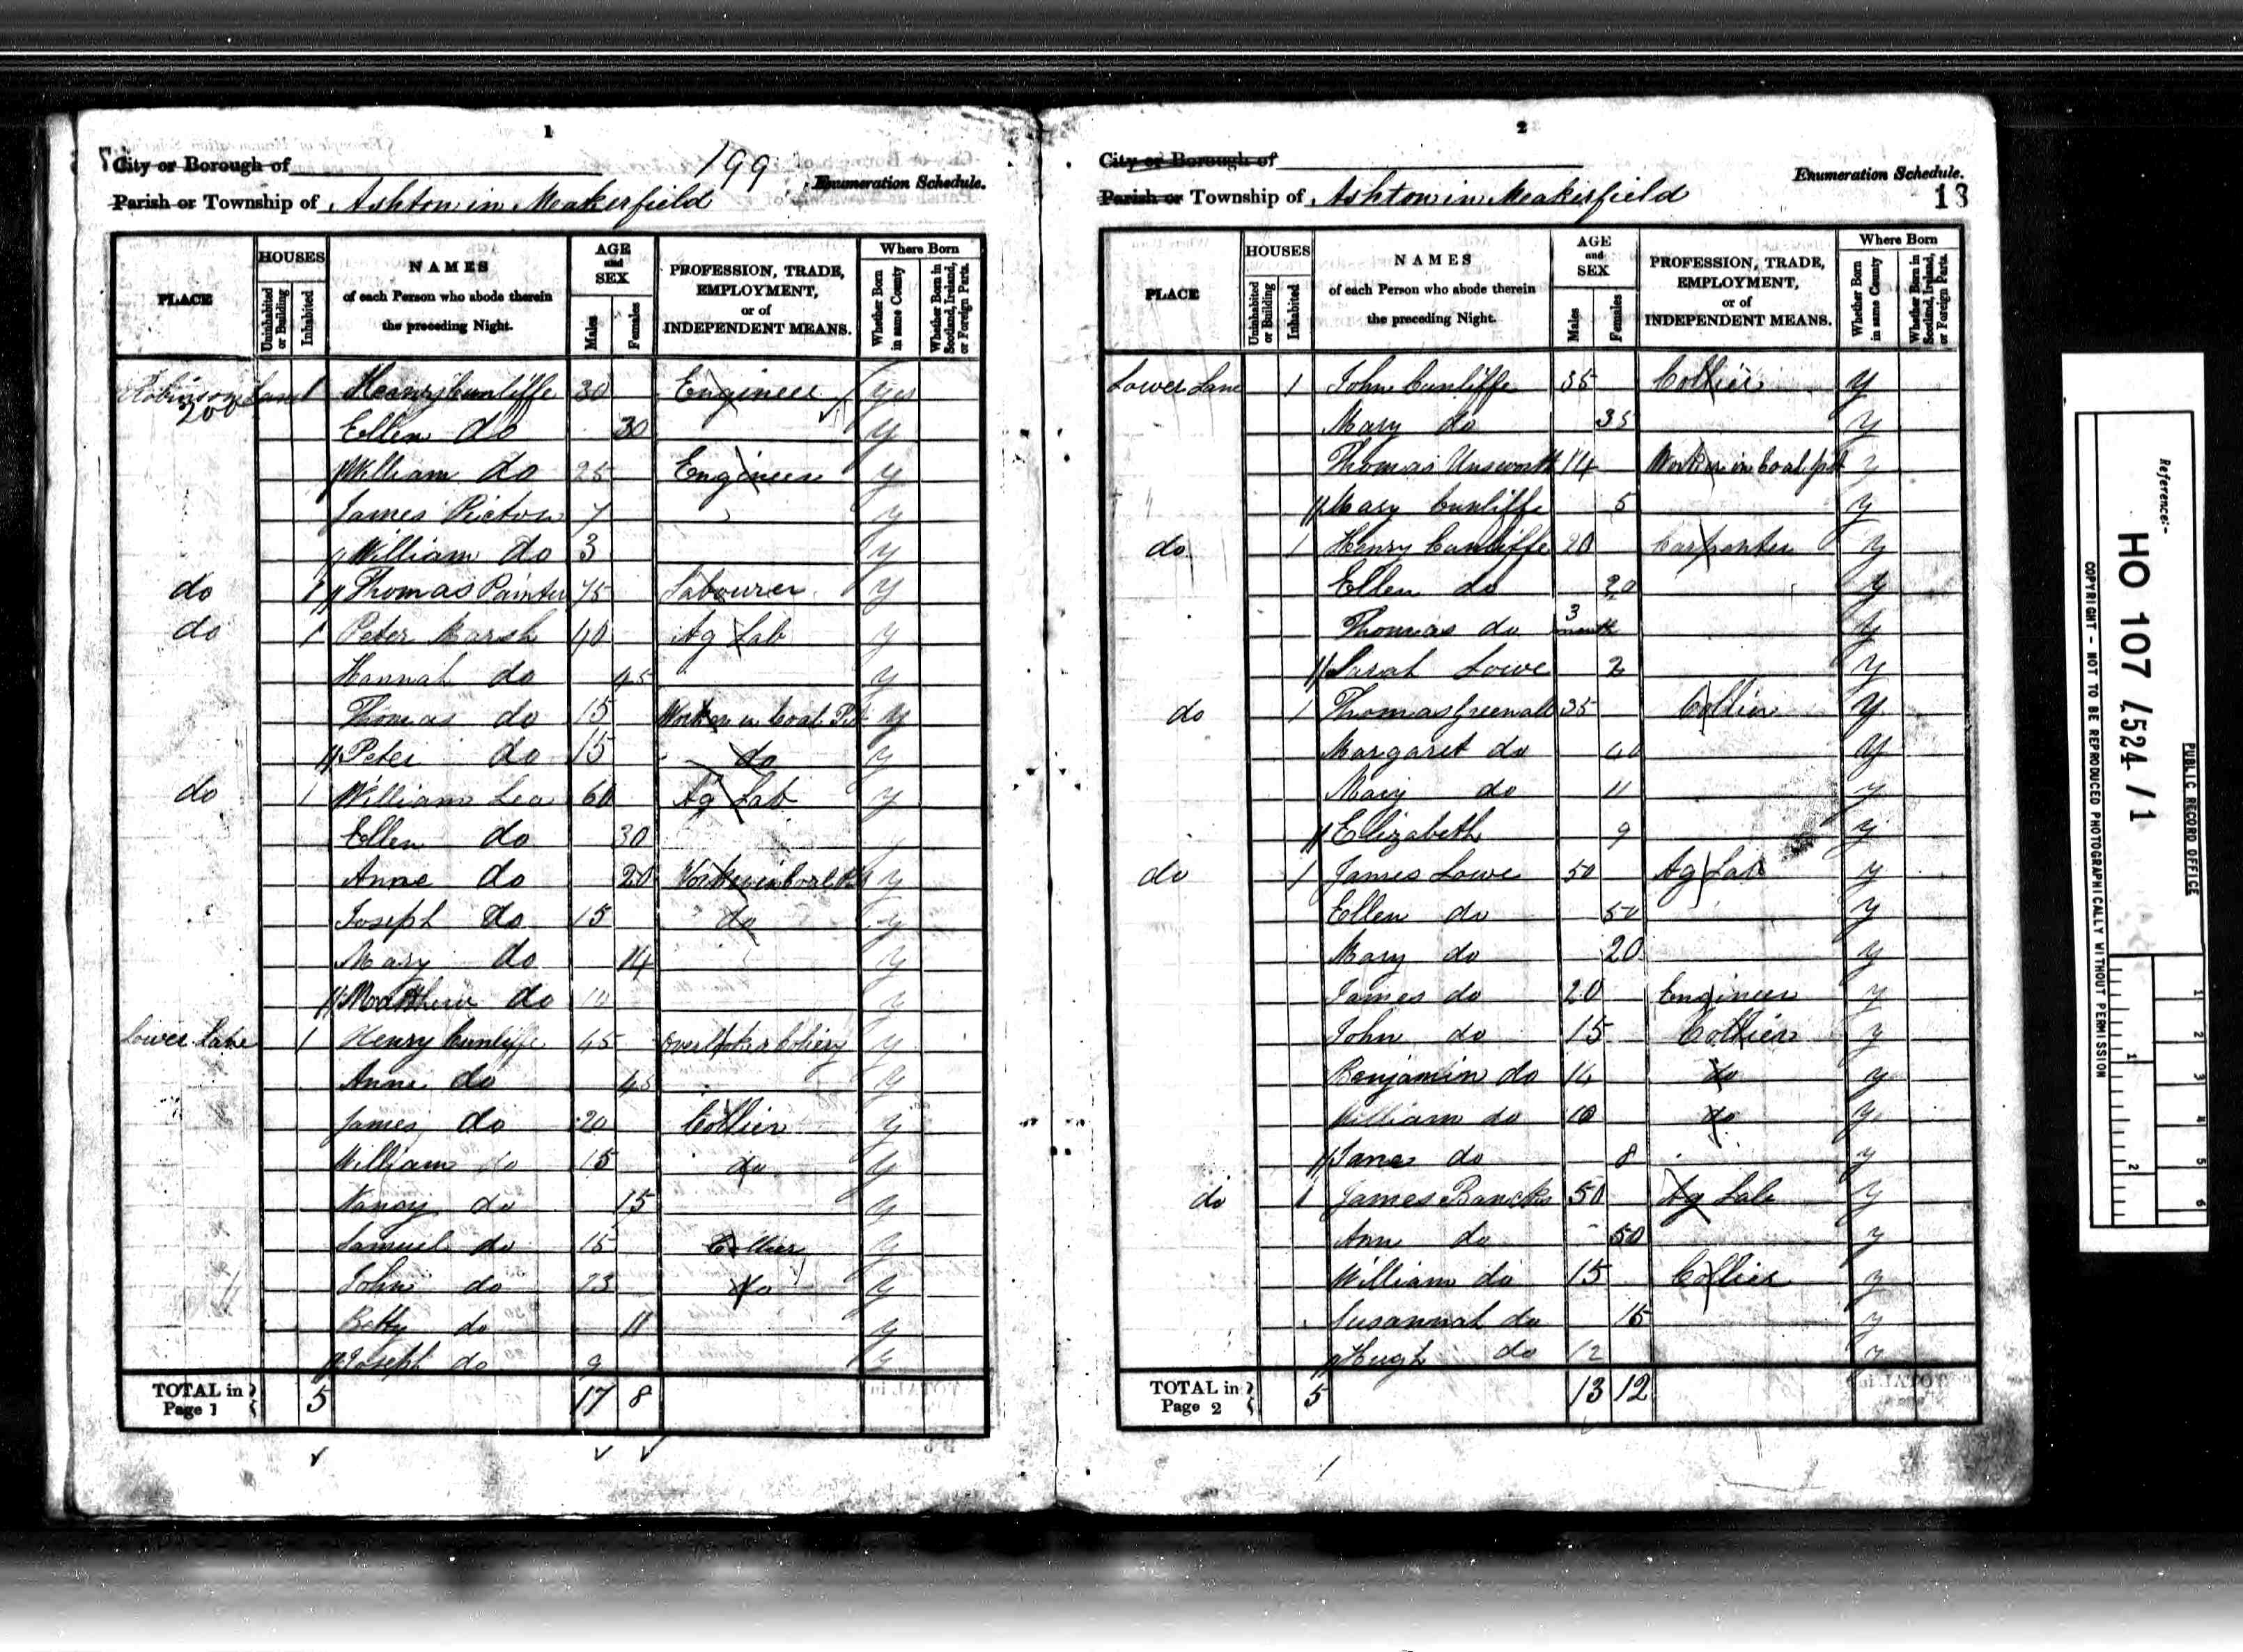 1
City or Borough of
199
Enumeration Schedule.
Parish or Township of Ashton in Meakerfield
PLACE
HOUSES
Uninhabited or Building
Inhabited
NAMES of each Person who abode therein the preceding Night.
AGE and SEX
Males
Females
PROFESSION, TRADE, EMPLOYMENT, or of INDEPENDENT MEANS.
Where Born
Whether Born in same County
Whether Born in Scotland, Ireland, or Foreign Parts.
Robinsons Lane 1 Henry Cunliffe 30 Engineer yes
200
Ellen do 30 y
William do 25 Engineer y
James Picton 7 y
William do 3 y
do 1 Thomas Painter 75 Labourer y
do 1 Peter Marsh 40 Ag Lab y
Hannah do 45 y
Thomas do 15 Worker in Coal Pit y
Peter do 15 do y
do 1 William Lea 60 Ag Lab y
Ellen do 30 y
Anne do 20 Worker in Coal Pit y
Joseph do 15 do y
Mary do 14 y
Matthew do 10 y
Lower Lane 1 Henry Cunliffe 45 Overlooker Coliery y
Anne do 45 y
James do 20 Collier y
William do 15 do y
Nancy do 15 y
Samuel do 15 Collier y
John do 13 do y
Betty do 11 y
Joseph do 9 y
TOTAL in Page 1 5 17 8
2
City or Borough of
Enumeration Schedule.
Parish or Township of Ashton in Meakerfield
13
PLACE
HOUSES
Uninhabited or Building
Inhabited
NAMES of each Person who abode therein the preceding Night.
AGE and SEX
Males
Females
PROFESSION, TRADE, EMPLOYMENT, or of INDEPENDENT MEANS.
Where Born
Whether Born in same County
Whether Born in Scotland, Ireland, or Foreign Parts.
Lower Lane 1 John Cunliffe 35 Collier y
Mary do 35 y
Thomas Unsworth 14 Worker in Coal pit y
Mary Cunliffe 5 y
do 1 Henry Cunliffe 20 Carpenter y
Ellen do 20 y
Thomas do 3 month y
Sarah Lowe 2 y
do 1 Thomas Greenall 35 Collier y
Margaret do 40 y
Mary do 11 y
Elizabeth 9 y
do 1 James Lowe 50 Ag Lab y
Ellen do 50 y
Mary do 20 y
James do 20 Engineer y
John do 15 Collier y
Benjamin do 14 do y
William do 10 do y
Jane do 8 y
do 1 James Banckes 50 Ag Lab y
Ann do 50 y
William do 15 Collier y
Susannah do 15 y
Hugh do 12 y
TOTAL in Page 2 5 13 12
Reference:-
HO 107 /524 / 1
PUBLIC RECORD OFFICE
COPYRIGHT - NOT TO BE REPRODUCED PHOTOGRAPHICALLY WITHOUT PERMISSION
1 2 3 4 5 6
1 2